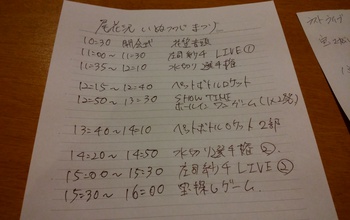 尾花沢 いとなつつじ まつり
10:30 開会式
11:00～11:30 庄司紗千 LIVE①
11:35～12:10 水切り選手権
12:15～12:40 ペットボトルロケット
12:50～13:30 SHOW TIME
ホールインワンゲーム(1,2部)
13:40～14:10 ペットボトルロケット2部
14:20～14:50 水切り選手権②
15:00～15:30 庄司紗千 LIVE②
15:30～16:00 宝探しゲーム